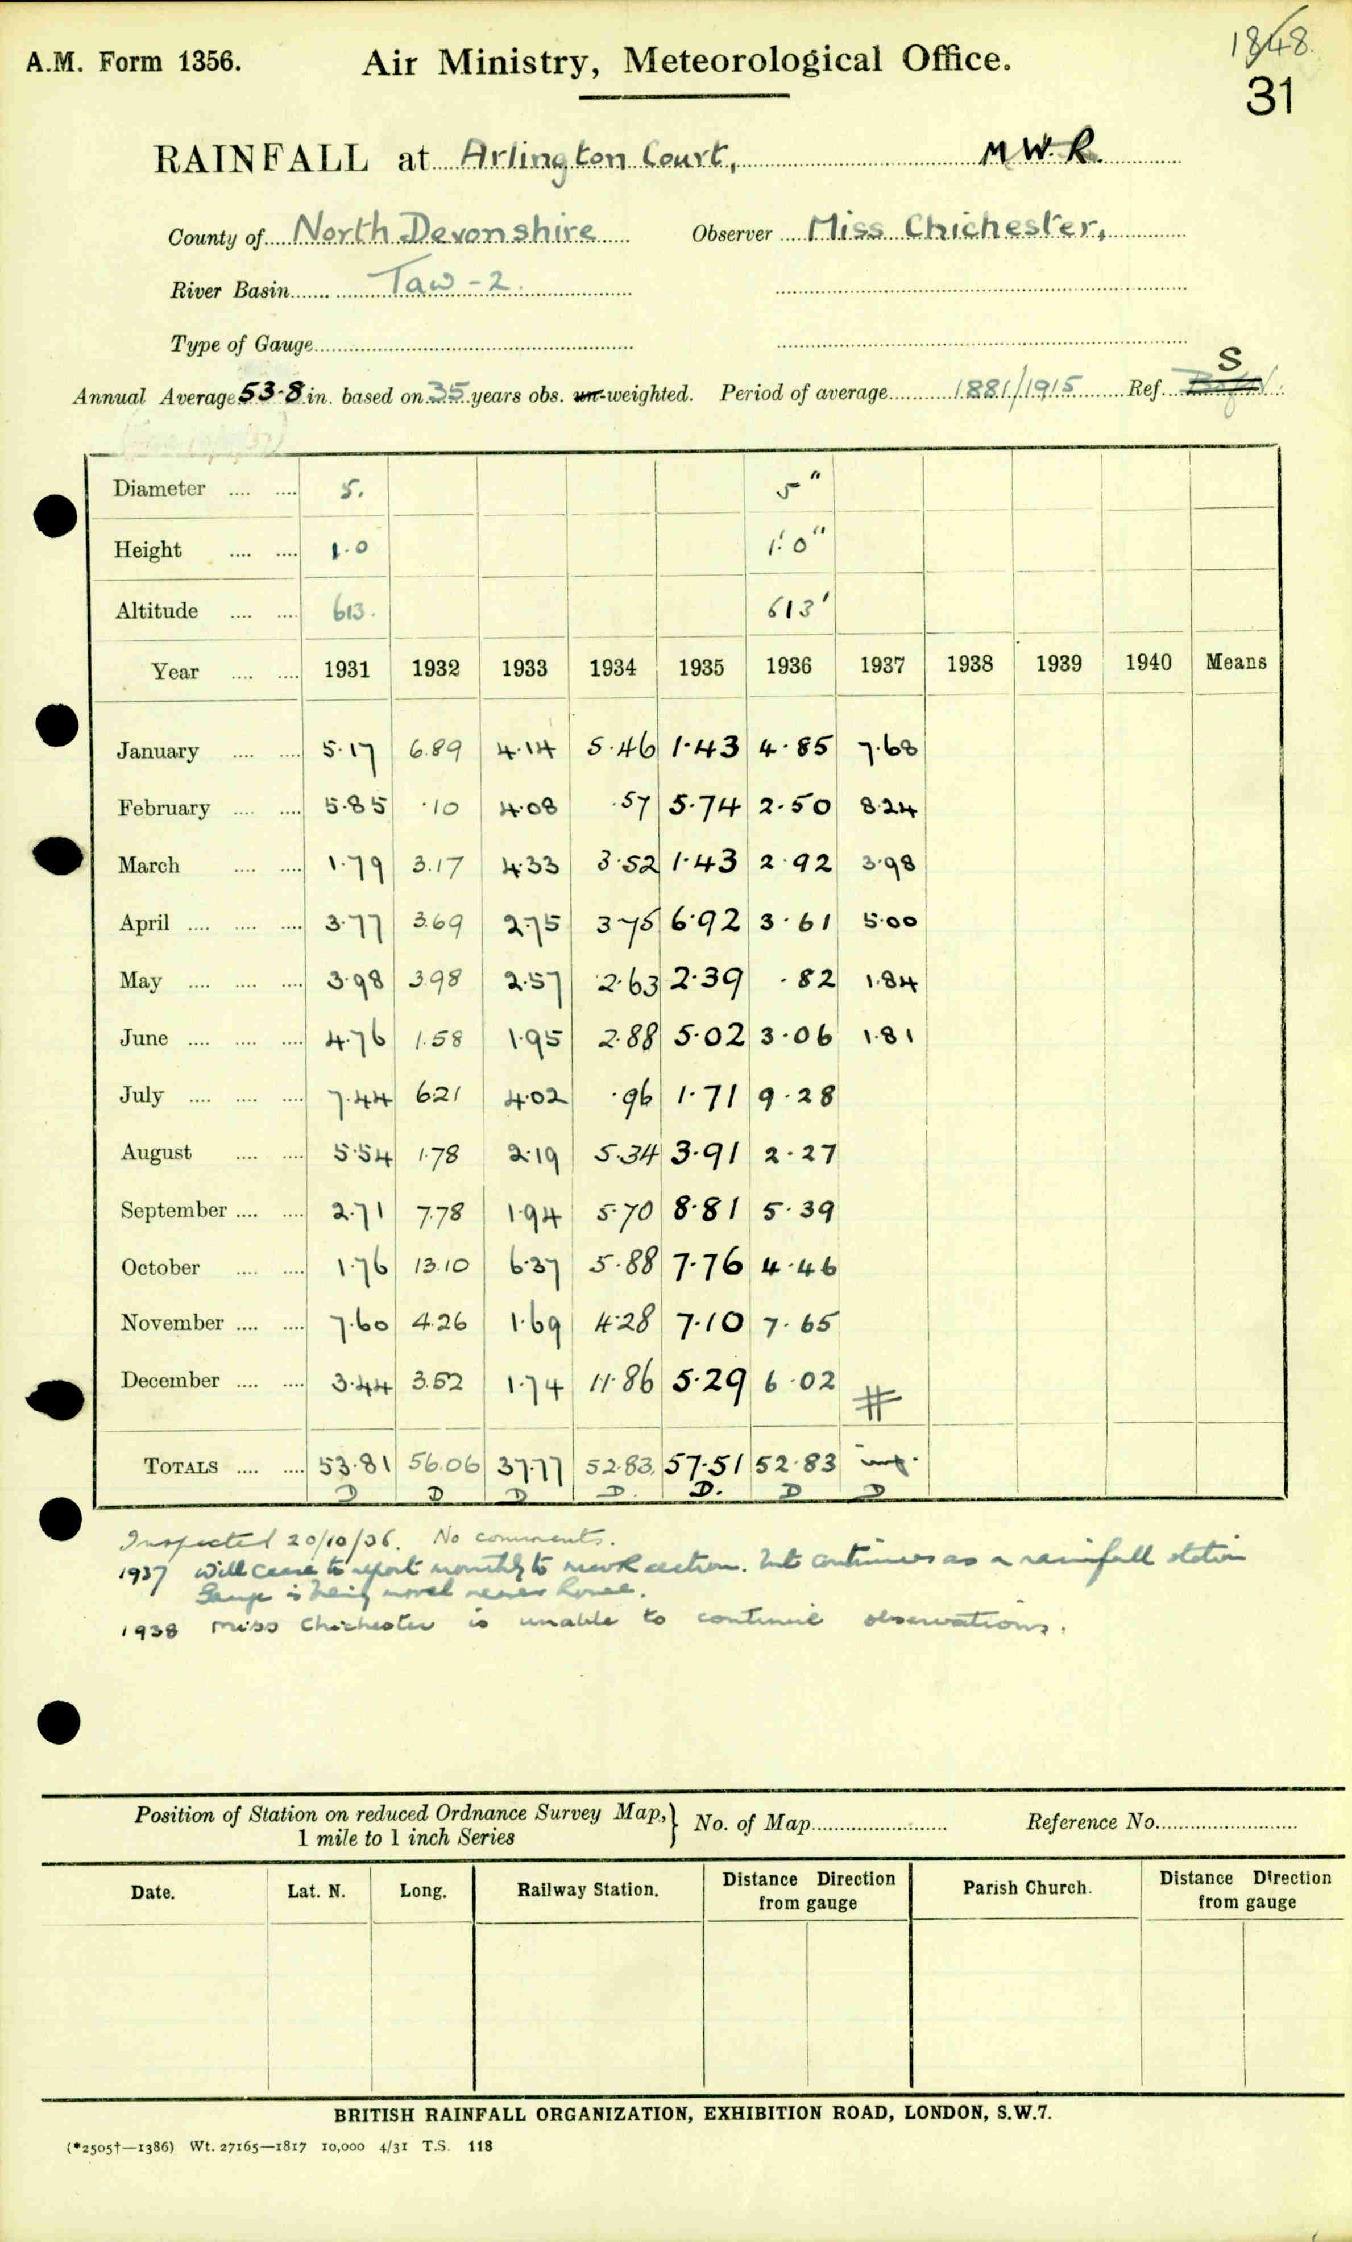 A.M. Form 1356.
Air Ministry, Meteorological Office.
1848.
31
RAINFALL at Arlington Court, M.W.R.
County of North Devonshire Observer Miss Chichester,
River Basin Taw - 2.
Type of Gauge
S
Annual Average 53.8 in. based on 35 years obs. un-weighted. Period of average 1881/1915 Ref.
Diameter .... .... 5. 5"
Height .... .... 1.0 1'.0"
Altitude .... .... 613. 613'
Year .... .... 1931 1932 1933 1934 1935 1936 1937 1938 1939 1940 Means
January .... .... 5.17 6.89 4.14 5.46 1.43 4.85 7.68
February .... .... 5.85 .10 4.08 .57 5.74 2.50 8.24
March .... .... 1.79 3.17 4.33 3.52 1.43 2.92 3.98
April .... .... .... 3.77 3.69 2.75 3.75 6.92 3.61 5.00
May .... .... .... 3.98 3.98 2.57 2.63 2.39 .82 1.84
June .... .... .... 4.76 1.58 1.95 2.88 5.02 3.06 1.81
July .... .... .... 7.44 6.21 4.02 .96 1.71 9.28
August .... .... 5.54 1.78 2.19 5.34 3.91 2.27
September .... .... 2.71 7.78 1.94 5.70 8.81 5.39
October .... .... 1.76 13.10 6.37 5.88 7.76 4.46
November .... .... 7.60 4.26 1.69 4.28 7.10 7.65
December .... .... 3.44 3.52 1.74 11.86 5.29 6.02 #
TOTALS .... .... 53.81 56.06 37.77 52.83 57.51 52.83 imp.
D D D D. D. D D
Inspected 20/10/36. No comments.
1937 Will cease to report monthly to section. but continues as a rainfall station
Gauge is being moved nearer house.
1938 Miss Chichester is unable to continue observations.
Position of Station on reduced Ordnance Survey Map, } No. of Map Reference No.
1 mile to 1 inch Series
Date. Lat. N. Long. Railway Station. Distance Direction from gauge Parish Church. Distance Direction from gauge
BRITISH RAINFALL ORGANIZATION, EXHIBITION ROAD, LONDON, S.W.7.
(*2505†—1386) Wt. 27165—1817 10,000 4/31 T.S. 118